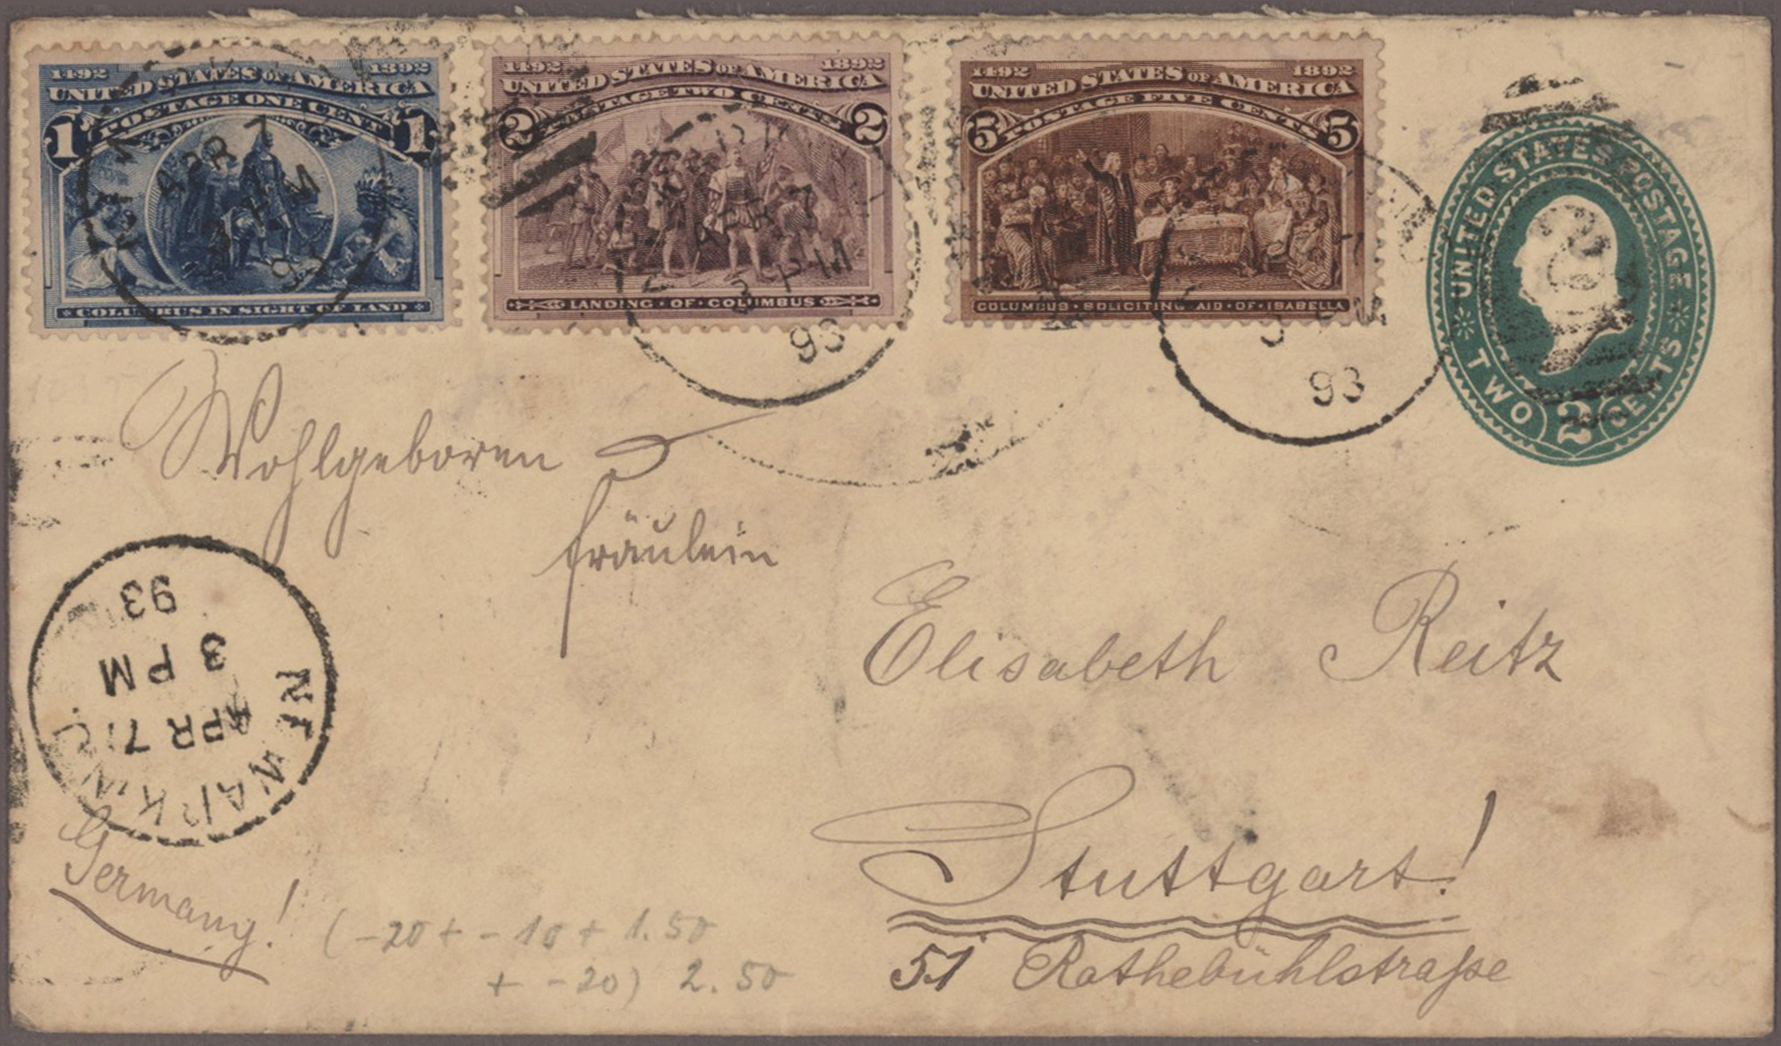 1492 1892
UNITED STATES OF AMERICA
POSTAGE ONE CENT
1 1
COLUMBUS IN SIGHT OF LAND
1492 1892
UNITED STATES OF AMERICA
POSTAGE TWO CENTS
2 2
LANDING · OF · COLUMBUS
1492 1892
UNITED STATES OF AMERICA
POSTAGE FIVE CENTS
5 5
COLUMBUS · SOLICITING · AID · OF · ISABELLA
UNITED STATES POSTAGE
TWO 2 CENTS
APR 7
3 PM
93
APR 7
3 PM
93
93
Wohlgeboren
Fräulein
Elisabeth Reitz
Stuttgart!
51 Rothebühlstraße
NEWARK N.J.
APR 7
3 PM
93
Germany!
(-20 + -10 + 1.50
+ -20) 2.50